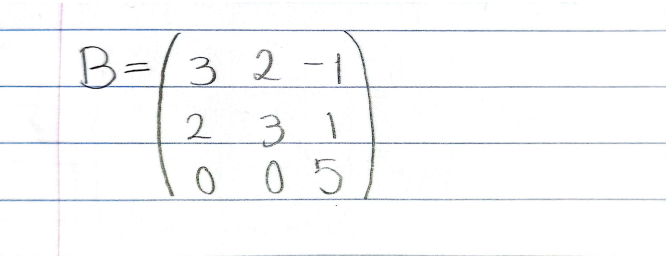 B = ( 3 2 -1
2 3 1
0 0 5 )